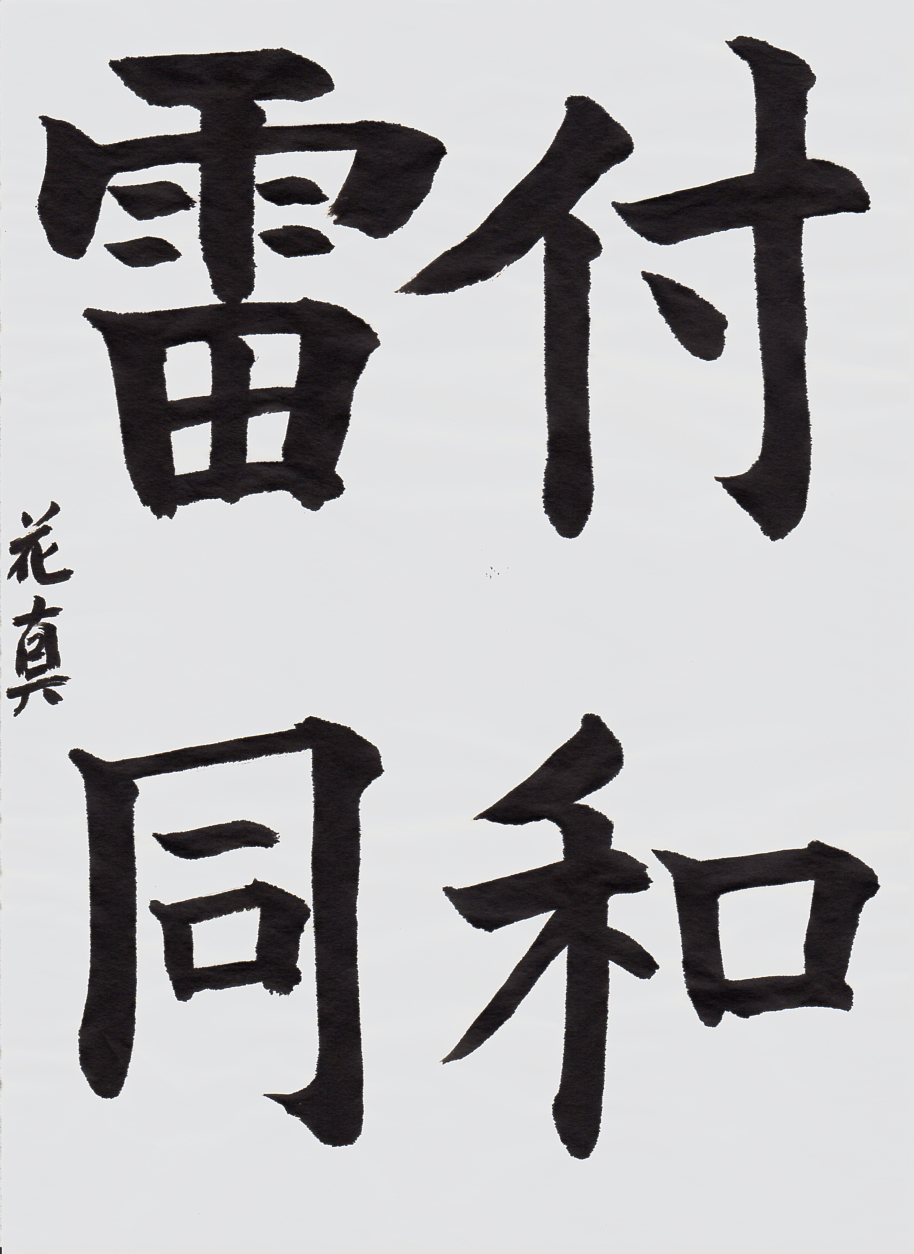 付和
雷同
花真